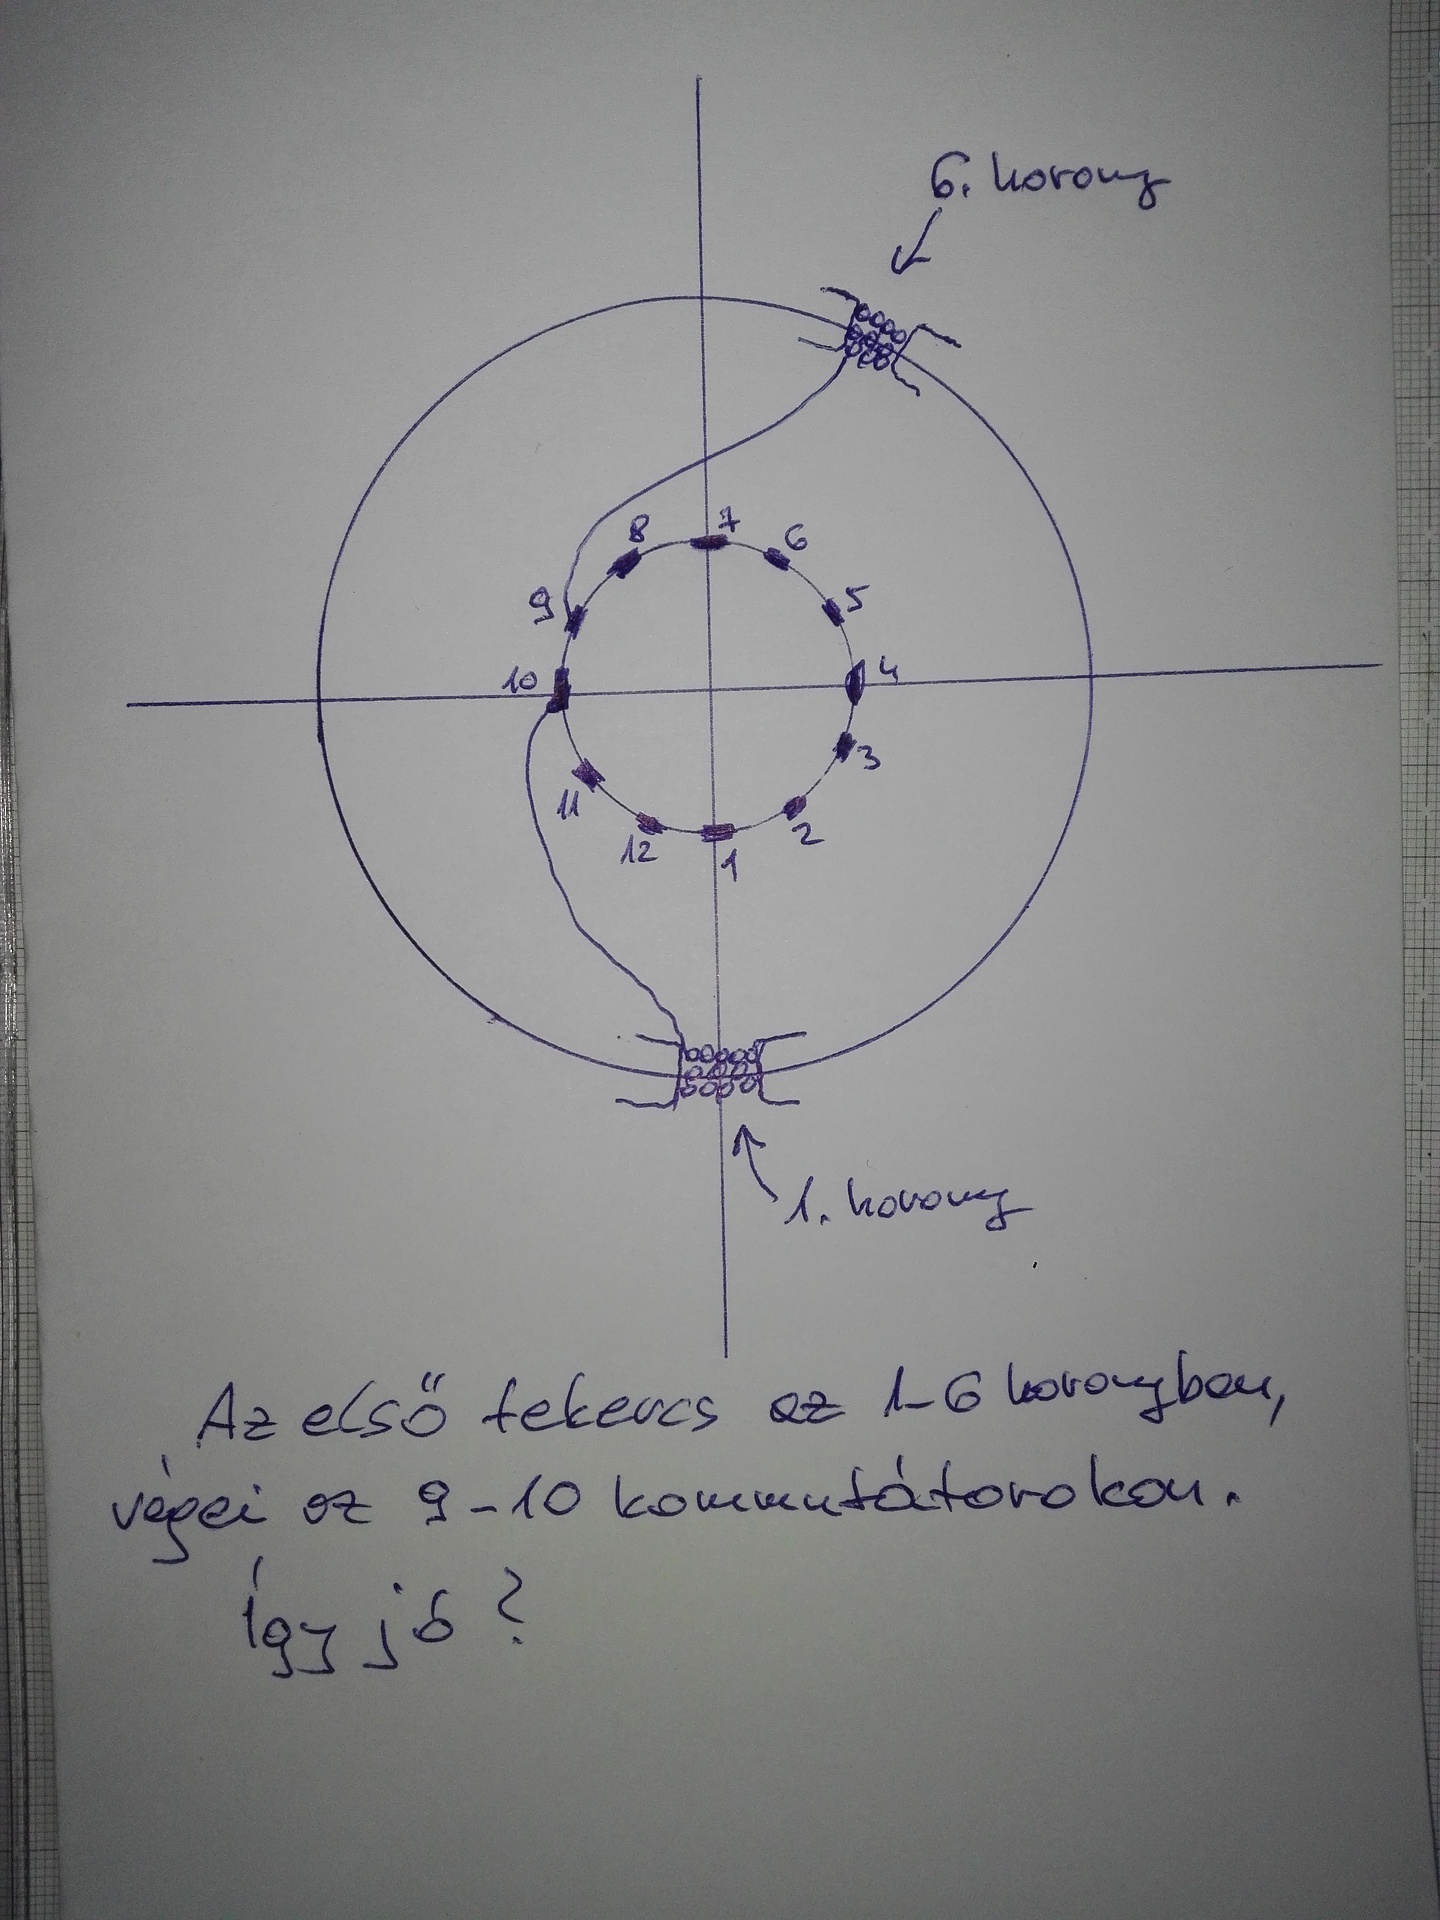 6. horony
8
7
6
9
5
10
4
3
11
12
1
2
1. horony
Az első tekercs az 1-6 horonyban,
végei az 9-10 kommutátorokon.
Így jó?